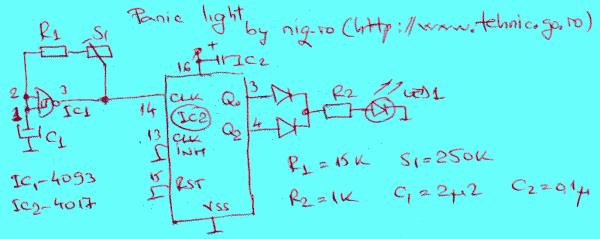 Panic light
by niq-ro (http://www.tehnic.go.ro)
R1 S1
+
16 C2
2 3 3 LED1
1 IC1 14 CLK Q0 R2
IC2
C1 13 CLK Q2 4
INH
15 RST
VSS
IC1-4093
IC2-4017
R1=15K S1=250K
R2=1K C1=2μ2 C2=0,1μ